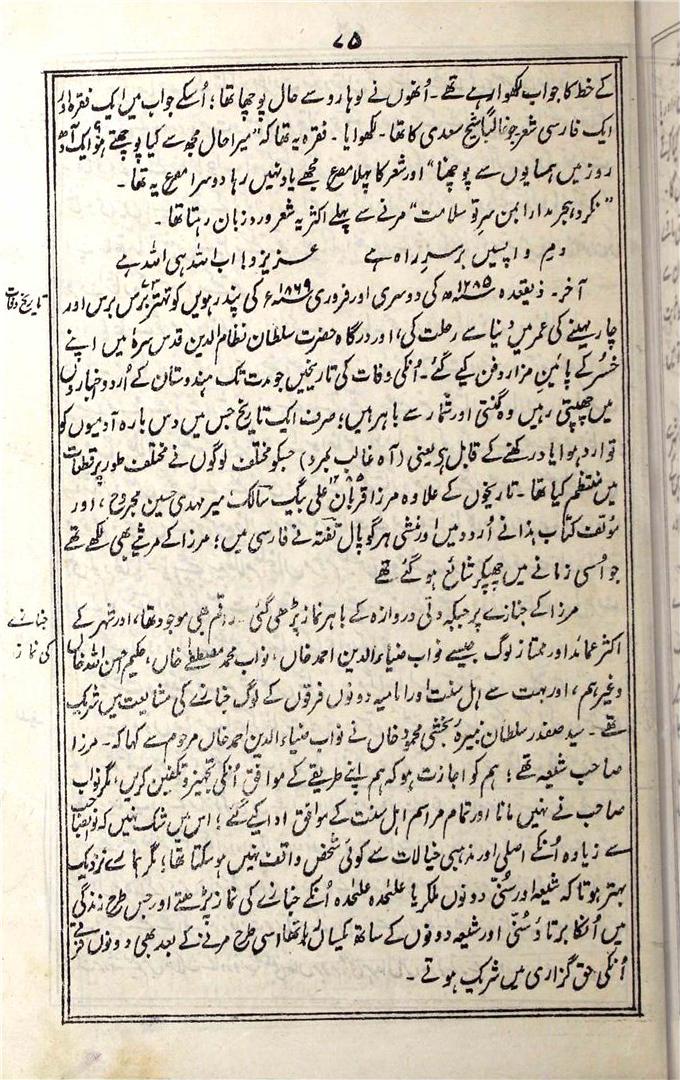 ۷۵
کے خط کا جواب لکھوا رہے تھے ۔ اُنھوں نے لوہارو سے حال پوچھا تھا ؛ اُسکے جواب میں ایک فقرہ اور
ایک فارسی شعر جو غالباً شیخ سعدی کا تھا ۔ لکھوایا ۔ فقرہ یہ تھا کہ "میرا حال مجھ سے کیا پوچھتے ہو؟ ایک آدھ
روز میں ہمسایوں سے پوچھنا" اور شعر کا پہلا مصرع مجھے یاد نہیں رہا دوسرا مصرع یہ تھا ۔
"نکرد ہجر مدارا بمن سرِ تو سلامت" مرنے سے پہلے اکثر یہ شعر وردِ زبان رہتا تھا ۔
دمِ واپسیں برسرِ راہ ہے عزیزو اب اللہ ہی اللہ ہے
آخر ۔ ذیقعدہ ۱۲۸۵ھ کی دوسری اور فروری ۱۸۶۹ء کی پندرھویں کو تہتر ۷۳ برس اور
تاریخ وفات
چار مہینے کی عمر میں دُنیا سے رحلت کی ، اور درگاہ حضرت سلطان نظام الدین قدس سرہٗ میں اپنے
خسُر کے پائینِ مزار دفن کیے گئے ۔ اُنکی وفات کی تاریخیں جو مدت تک ہندوستان کے اُردو اخباروں
میں چھپتی رہیں وہ گنتی اور شمار سے باہر ہیں ؛ صرف ایک تاریخ جس میں دس بارہ آدمیوں کو
توارد ہوا یاد رکھنے کے قابل ہی یعنی (آہ غالب بمرد) جسکو مختلف لوگوں نے مختلف طور پر قطعات
میں منتظم کیا تھا ۔ تاریخوں کے علاوہ مرزا قربان علی بیگ سالک ، میر مہدی حسین مجروح ، اور
مؤلفِ کتاب ہذا نے اُردو میں اور منشی ہرگوپال تفتہ نے فارسی میں ؛ مرزا کے مرثیے بھی لکھے تھے
جو اُسی زمانے میں چھپکر شائع ہو گئے تھے
مرزا کے جنازے پر جبکہ دلّی دروازہ کے باہر نماز پڑھی گئی ۔ راقم بھی موجود تھا ، اور شہر کے
جنازے کی نماز
اکثر عمائد اور ممتاز لوگ جیسے نواب ضیاء الدین احمد خاں ، نواب محمد مصطفےٰ خاں ، حکیم احسن اللہ خاں
وغیرہم ، اور بہت سے اہل سنت اور امامیہ دونوں فرقوں کے لوگ جنازے کی مشایعت میں شریک
تھے ۔ سید صفدر سلطان نبیرۂ بخشی محمود خاں نے نواب ضیاء الدین احمد خاں مرحوم سے کہا کہ ۔ مرزا
صاحب شیعہ تھے ؛ ہم کو اجازت ہو کہ ہم اپنے طریقے کے موافق اُنکی تجہیز و تکفین کریں ، مگر نواب
صاحب نے نہیں مانا اور تمام مراسم اہل سنت کے موافق ادا کیے گئے ؛ اس میں شک نہیں کہ نواب صاحب
سے زیادہ اُنکے اصلی اور مذہبی خیالات سے کوئی شخص واقف نہیں ہو سکتا تھا ؛ مگر ہمارے نزدیک
بہتر ہوتا کہ شیعہ اور سُنّی دونوں ملکر یا علٰحدہ علٰحدہ اُنکے جنازے کی نماز پڑھتے اور جس طرح زندگی
میں اُنکا برتاؤ سُنّی اور شیعہ دونوں کے ساتھ یکساں رہا تھا اسی طرح مرنے کے بعد بھی دونوں فرقے
اُنکی حق گزاری میں شریک ہوتے ۔